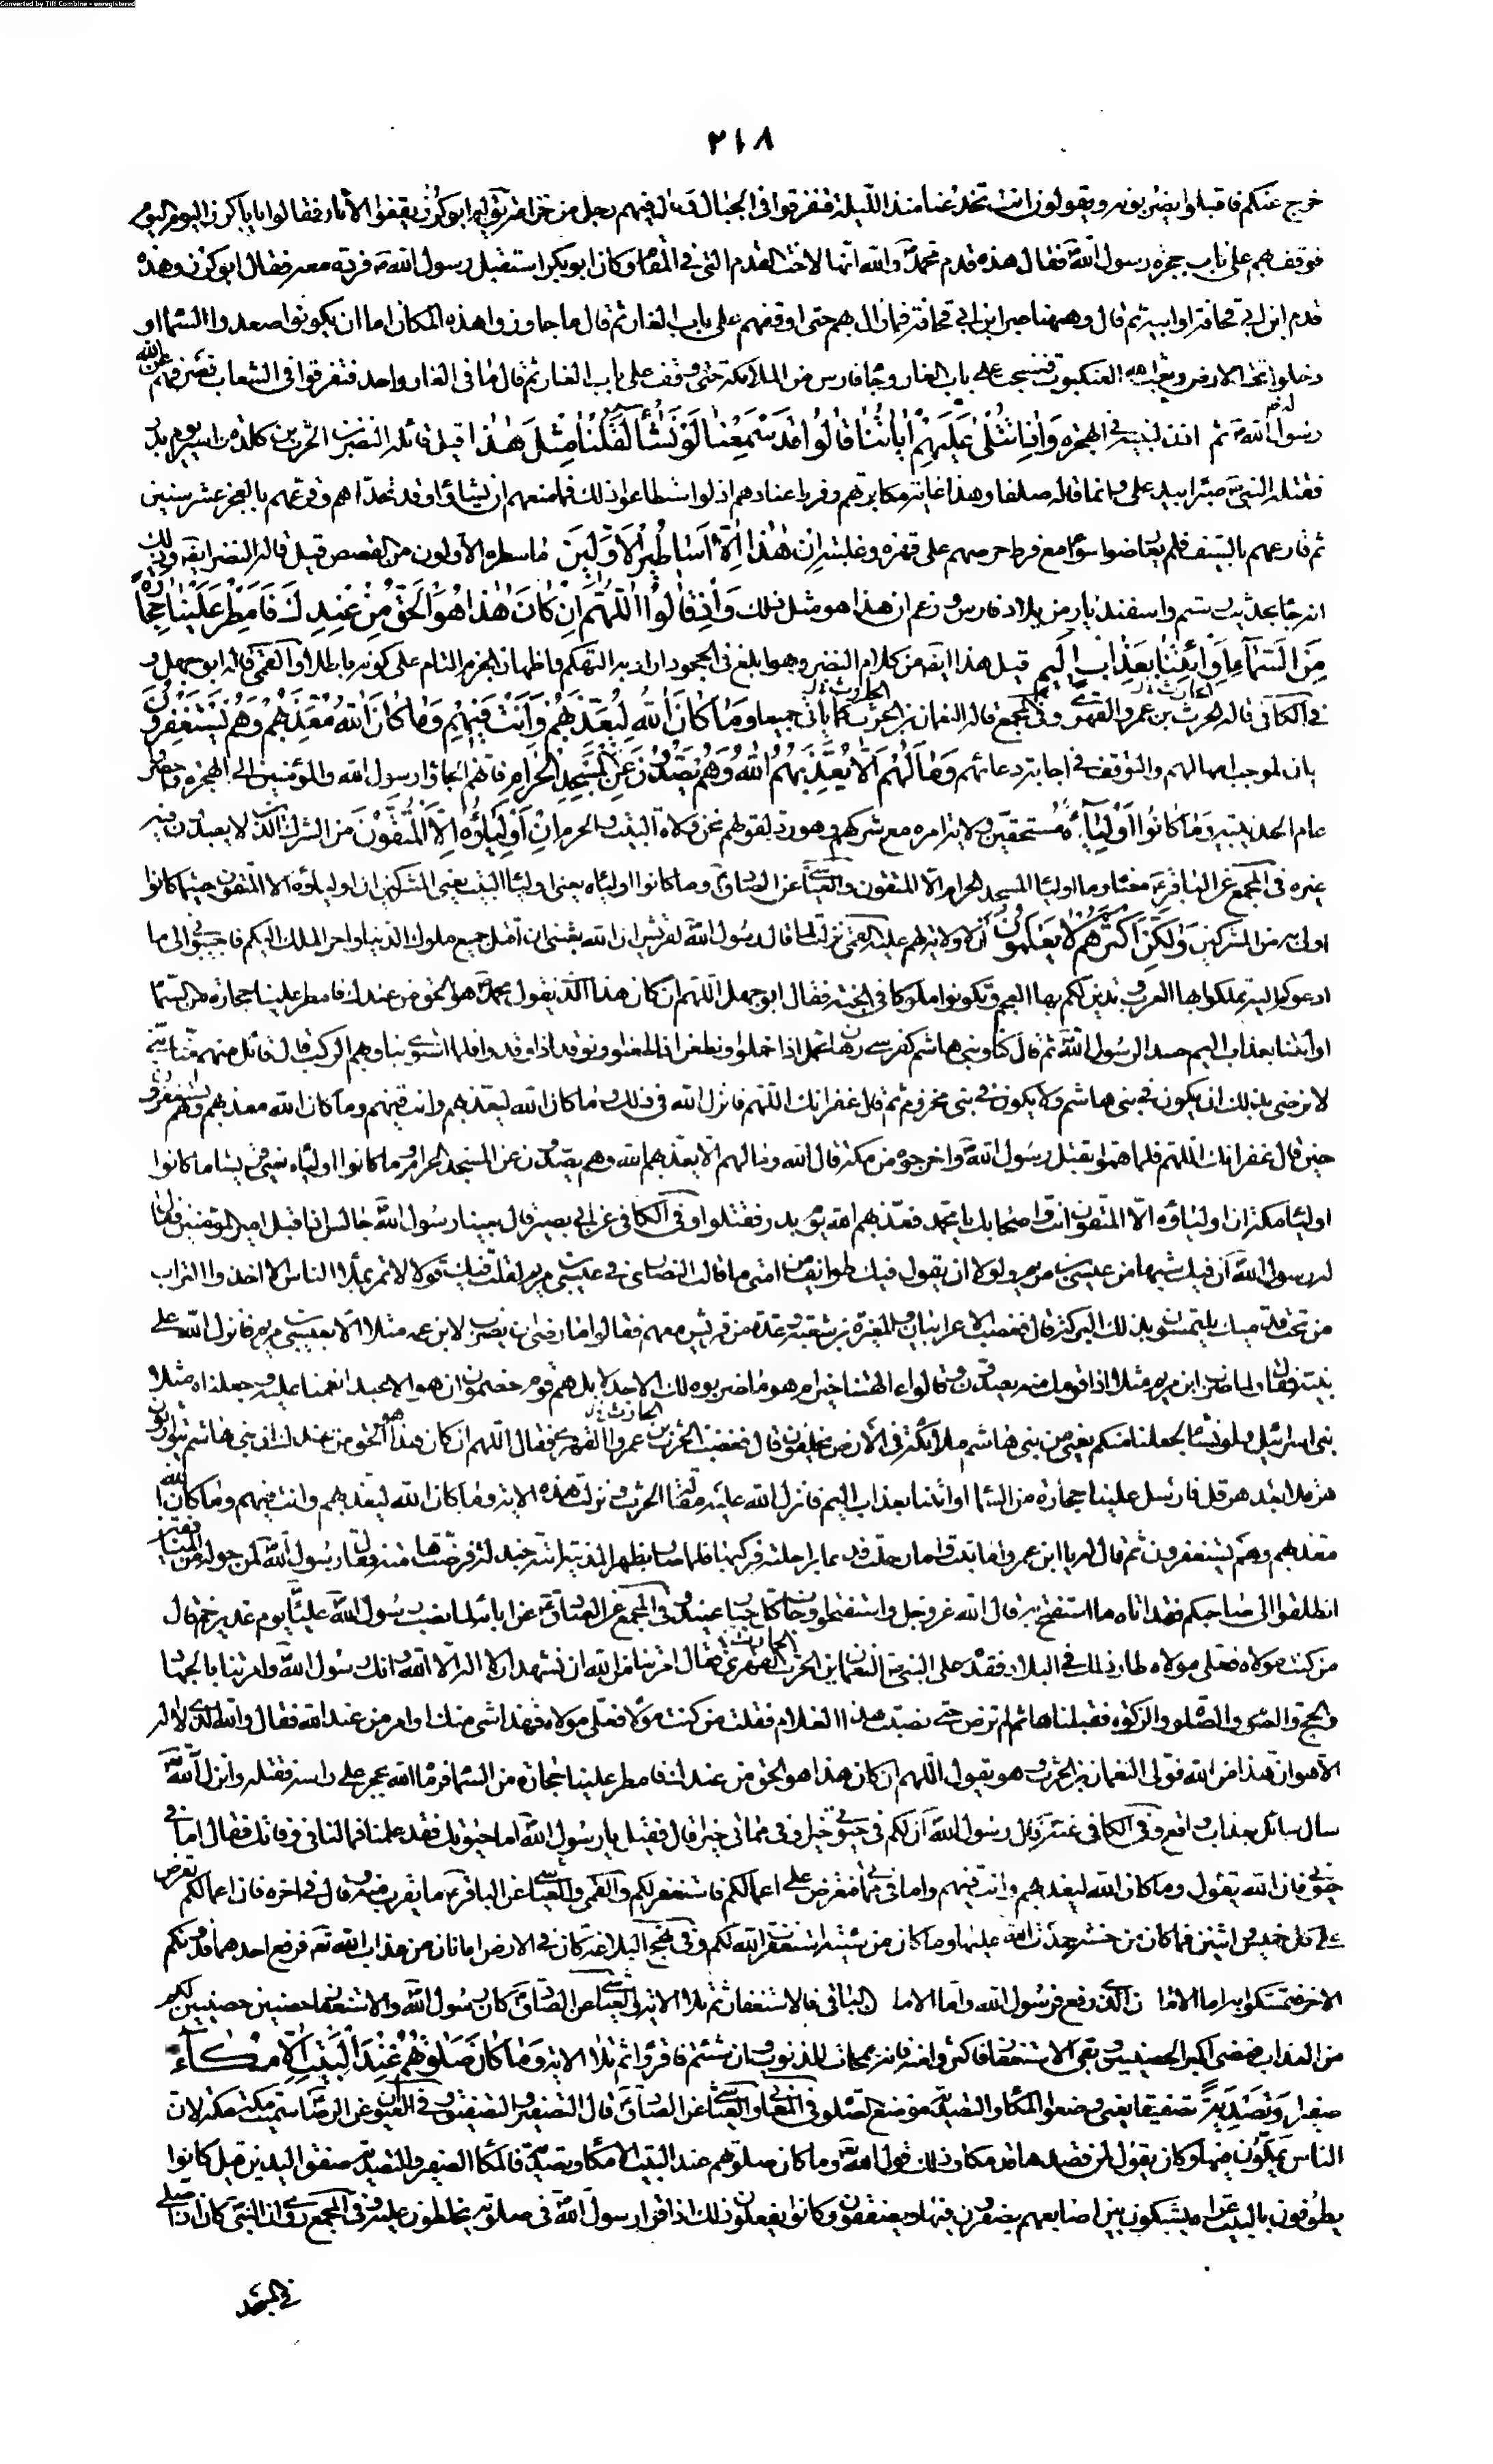 Converted by Tiff Combine - unregistered
٢١٨
خرج عنكم فاقبلوا يضربونه ويقولون انت تخدعنا منذ الليلة فتفرقوا في الجبال وكان فيهم رجل من خزاعة يقال له ابو كرز يقفوا الاثار فقالوا يا با كرز اليوم اليوم
فوقف بهم على باب حجرة رسول الله فقال هذه قدم محمد والله انها لاخت القدم التي في المقام وكان ابو بكر استقبل رسول الله ص فرده معه فقال ابو كرز وهذه
قدم ابن ابي قحافة او ابيه ثم قال وههنا عبر ابن ابي قحافة فما زال بهم حتى اوقفهم على باب الغار ثم قال ما جاوزوا هذه المكان اما ان يكونوا صعدوا السماء او
دخلوا تحت الارض وبعث الله العنكبوت فنسجت على باب الغار وجاء فارس من الملائكة حتى وقف على باب الغار ثم قال ما في الغار واحد فتفرقوا في الشعاب فصرفهم الله عن
رسول الله ص ثم اذن لنبيه في الهجرة وَاِذا تُتْلى عَلَيْهِمْ اياتُنا قالُوا قَدْ سَمِعْنا لَوْ نَشاءُ لَقُلْنا مِثْلَ هذا قيل قائله النضر بن الحرث بن كلدة واسر يوم بدر
فقتله النبي ص صبرا بيد علي ع وانما قاله صلفا وهذا غاية مكابرتهم وفرط عنادهم اذ لو استطاعوا ذلك فما منعهم ان يشاؤا وقد تحداهم وقرعهم بالعجز عشر سنين
ثم قارعهم بالسيف فلم يعارضوا سورة مع فرط حرصهم على قهره وغلبته اِنْ هذا اِلاّ اَساطيرُ الاَوَّلينَ ما سطره الاولون من القصص قيل قاله النضر ايضا وذلك
انه جاء بحديث رستم واسفنديار من بلاد فارس وزعم ان هذا هو مثل ذلك وَاِذْ قالُوا اللّهُمَّ اِنْ كانَ هذا هُوَ الْحَقَّ مِنْ عِنْدِكَ فَاَمْطِرْ عَلَيْنا حِجارَةً
مِنَ السَّماءِ اَوِ ائْتِنا بِعَذابٍ اَليمٍ قيل هذا ايضا من كلام النضر وهو ابلغ في الجحود اراد به التهكم واظهار الجزم التام على كونه باطلا والقمي قاله ابو جهل و
في الكافي قاله الحرث بن عمرو الفهري وفي المجمع قاله النعمان بن الحرث كما ياتي جميعا وَما كانَ اللهُ لِيُعَذِّبَهُمْ وَاَنْتَ فيهِمْ وَما كانَ اللهُ مُعَذِّبَهُمْ وَهُمْ يَسْتَغْفِرُونَ
بيان لموجب امهالهم والتوقف في اجابة دعائهم وَما لَهُمْ اَلاّ يُعَذِّبَهُمُ اللهُ وَهُمْ يَصُدُّونَ عَنِ الْمَسْجِدِ الْحَرامِ فانهم الجاؤا رسول الله والمؤمنين الى الهجرة واحصر
عام الحديبية وَما كانُوا اَوْلِياءَهُ مستحقين ولاية امره مع شركهم وهو رد لقولهم نحن ولاة البيت والحرم اِنْ اَوْلِياؤُهُ اِلاّ الْمُتَّقُونَ من الشرك الذين لا يعبدون فيه
غيره في المجمع عن الباقر ع معناه وما اولياء المسجد الحرام الا المتقون والعياشي عن الصادق ع وما كانوا اولياءه يعني اولياء البيت يعني المشركين ان اولياؤه الا المتقون حيثما كانوا
اولى به من المشركين وَلكِنَّ اَكْثَرَهُمْ لا يَعْلَمُونَ ان لا ولاية لهم عليه القمي نزلت لما قال رسول الله لقريش ان الله بعثني ان اقتل جميع ملوك الدنيا واجر الملك اليكم فاجيبوني الى ما
ادعوكم اليه تملكوا بها العرب وتدين لكم بها العجم وتكونوا ملوكا في الجنة فقال ابو جهل اللهم ان كان هذا الذي يقول محمد هو الحق من عندك فامطر علينا حجارة من السماء
او ائتنا بعذاب اليم حسدا لرسول الله ثم قال كنا وبني هاشم كفرسي رهان نحمل اذا حملوا ونطعن اذا طعنوا ونوقد اذا وقدوا فلما استوى بنا وبهم الركب قال قائل منهم منا نبي
لا نرضى بذلك ان يكون في بني هاشم ولا يكون في بني مخزوم ثم قال غفرانك اللهم فانزل الله في ذلك وما كان الله ليعذبهم وانت فيهم وما كان الله معذبهم وهم يستغفرون
حين قال غفرانك اللهم فلما هموا بقتل رسول الله واخرجوه من مكة قال الله وما لهم الا يعذبهم الله وهم يصدون عن المسجد الحرام وما كانوا اولياءه يعني قريشا ما كانوا
اولياء مكة ان اولياؤه الا المتقون انت واصحابك يا محمد فعذبهم الله يوم بدر فقتلوا وفي الكافي عن ابي بصير قال بينا رسول الله جالس اذا قبل امير المؤمنين فقال
له رسول الله ان فيك شبها من عيسى بن مريم ولولا ان يقول فيك طوائف من امتي ما قالت النصارى في عيسى بن مريم لقلت فيك قولا لا تمر بملأ من الناس الا اخذوا التراب
من تحت قدميك يلتمسون بذلك البركة قال فغضب الاعرابيان والمغيرة بن شعبة وعدة من قريش معهم فقالوا ما رضي ان يضرب لابن عمه مثلا الا بعيسى بن مريم فانزل الله على
نبيه فقال ولما ضرب ابن مريم مثلا اذا قومك منه يصدون وقالوا ءالهتنا خير ام هو ما ضربوه لك الا جدلا بل هم قوم خصمون ان هو الا عبد انعمنا عليه وجعلناه مثلا
بني اسرائيل ولو نشاء لجعلنا منكم يعني من بني هاشم ملائكة في الارض يخلفون قال فغضب الحرث بن عمرو الفهري فقال اللهم ان كان هذا هو الحق من عندك ان بني هاشم يتوارثون
هرقلا بعد هرقل فارسل علينا حجارة من السماء او ائتنا بعذاب اليم فانزل الله عليه مقالة الحرث ونزلت هذه الاية وما كان الله ليعذبهم وانت فيهم وما كان الله
معذبهم وهم يستغفرون ثم قال له يا ابن عمرو اما تبت واما رحلت فدعا براحلته فركبها فلما صار بظهر المدينة اتته جندلة فرضت هامته فقال رسول الله لمن حوله من المنافقين
انطلقوا الى صاحبكم فقد اتاه ما استفتح به قال الله عز وجل واستفتحوا وخاب كل جبار عنيد وفي المجمع عن الصادق ع عن ابائه لما نصب رسول الله عليا يوم غدير خم قال
من كنت مولاه فعلي مولاه طار ذلك في البلاد فقدم على النبي ص النعمان بن الحرث الفهري فقال امرتنا من الله ان نشهد ان لا اله الا الله وانك رسول الله وامرتنا بالجهاد
والحج والصوم والصلوة والزكوة فقبلناها ثم لم ترض حتى نصبت هذا الغلام فقلت من كنت مولاه فعلي مولاه فهذا شيء منك او امر من عند الله فقال والله الذي لا اله
الا هو ان هذا من الله فولى النعمان بن الحرث وهو يقول اللهم ان كان هذا هو الحق من عندك فامطر علينا حجارة من السماء فرماه الله بحجر على راسه فقتله وانزل الله
سال سائل بعذاب واقع وفي الكافي عنه ع قال رسول الله ان لكم في حيوتي خيرا وفي مماتي خيرا قال فقيل يا رسول الله اما حيوتك فقد علمنا فما لنا في وفاتك فقال اما في
حيوتي فان الله يقول وما كان الله ليعذبهم وانت فيهم واما في مماتي فتعرض علي اعمالكم فاستغفر لكم والقمي والعياشي عن الباقر ع ما يقرب منه وقال في اخره فان اعمالكم تعرض
علي كل خميس واثنين فما كان من حسنة حمدت الله عليها وما كان من سيئة استغفرت الله لكم وفي نهج البلاغة كان في الارض امانان من عذاب الله فرفع احدهما فدونكم
الاخر فتمسكوا به اما الامان الذي رفع فرسول الله واما الامان الباقي فالاستغفار ثم تلا الاية العياشي عن الصادق ع كان رسول الله والاستغفار حصنين حصينين لكم
من العذاب فمضى اكبر الحصنين وبقي الاستغفار فاكثروا منه فانه ممحاة للذنوب وان شئتم فاقرؤا ثم تلا الاية وَما كانَ صَلوتُهُمْ عِنْدَ الْبَيْتِ اِلاّ مُكاءً
صفيرا وَتَصْدِيَةً تصفيقا يعني وضعوا المكاء والتصدية موضع الصلوة في المعاني والعياشي عن الصادق ع قال التصفير والتصفيق وفي العيون عن الرضا ع سميت مكة مكة لان
الناس يمكون فيها وكان يقول لمن قصدها قد مكا وذلك قول الله وما كان صلوتهم عند البيت الا مكاء وتصدية فالمكاء الصفير والتصدية صفق اليدين قيل كانوا
يطوفون بالبيت عراة يشبكون بين اصابعهم يصفرون فيها ويصفقون وكانوا يفعلون ذلك اذا قرا رسول الله في صلوته يخلطون عليه وفي المجمع روي ان النبي كان اذا صلى
في المسجد